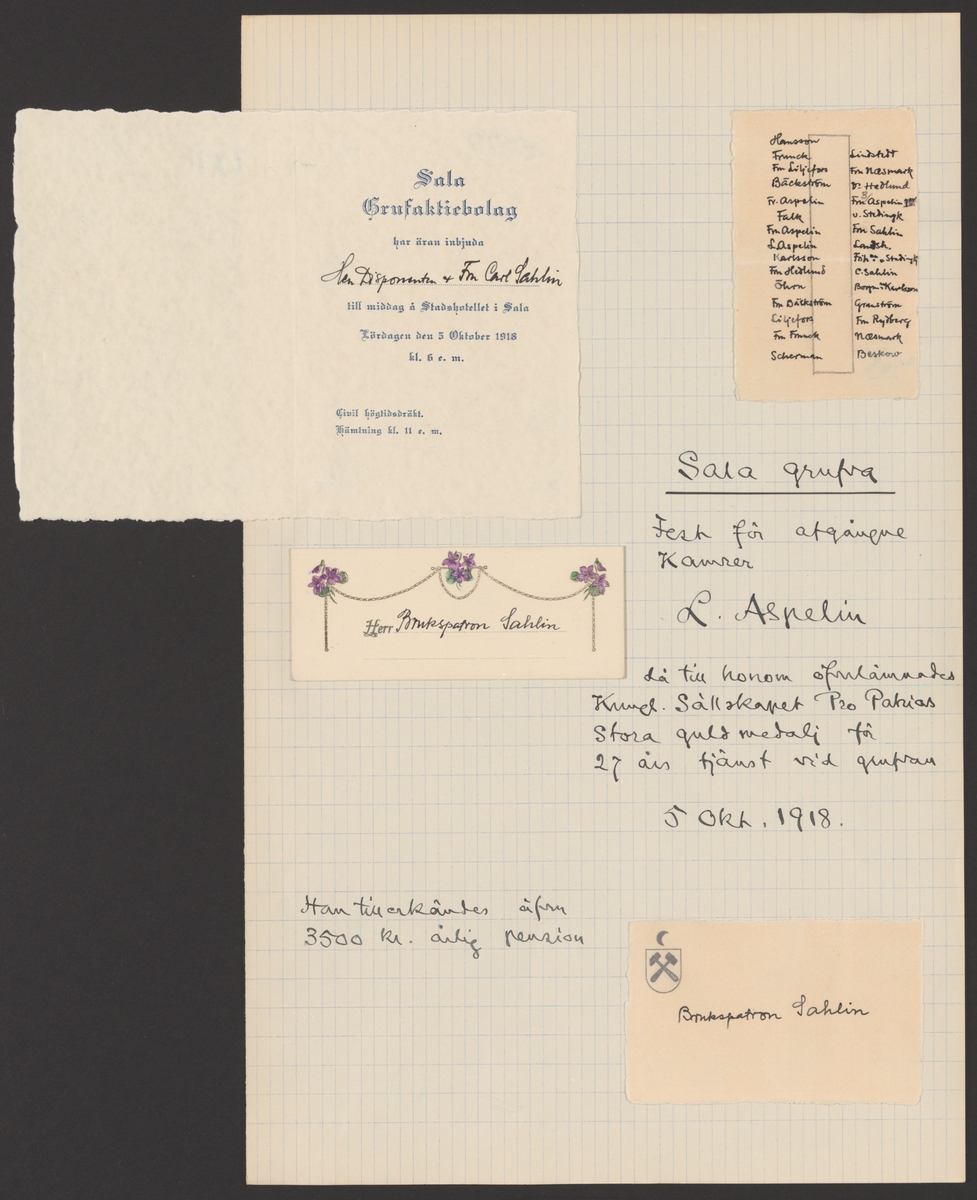 Sala
Grufaktiebolag
har äran inbjuda
Herr Disponenten & Fru Carl Sahlin
till middag å Stadshotellet i Sala
Lördagen den 5 Oktober 1918
kl. 6 e. m.
Civil högtidsdräkt.
Hämtning kl. 11 e. m.
Hansson
Franck
Fru Liljefors
Bäckström
Fr. Aspelin
Falk
Fru Aspelin
L. Aspelin
Karlsson
Fru Hedlund
Öhrn
Fru Bäckström
Liljefors
Fru Franck
Scherman
Lindstedt
Fru Næsmark
Dr Hedlund
Fru Aspelin
v. Stedingk
Fru Sahlin
Landsh.
Frih:an v. Stedingk
C. Sahlin
Borgm. Karlson
Granström
Fru Rydberg
Næsmark
Beskow
Sala grufva
Fest för afgångne
Kamrer
L. Aspelin
då till honom öfverlämnades
Kungl. Sällskapet Pro Patrias
Stora guldmedalj för
27 års tjänst vid grufvan
5 Okt. 1918.
Herr Brukspatron Sahlin
Han tillerkändes äfven
3500 kr. årlig pension
Brukspatron Sahlin